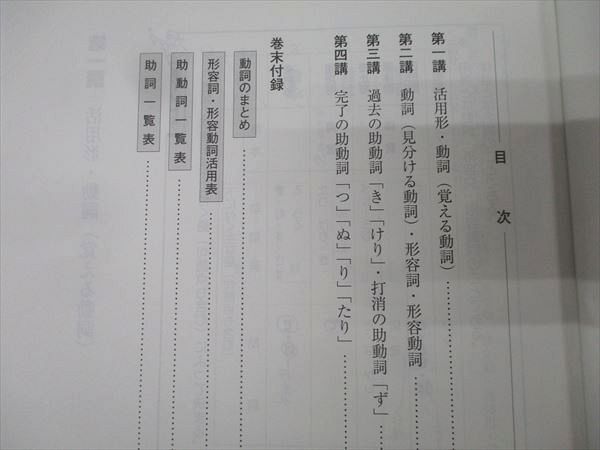 目次
第一講 活用形・動詞（覚える動詞）
第二講 動詞（見分ける動詞）・形容詞・形容動詞
第三講 過去の助動詞「き」「けり」・打消の助動詞「ず」
第四講 完了の助動詞「つ」「ぬ」「り」「たり」
巻末付録
動詞のまとめ
形容詞・形容動詞活用表
助動詞一覧表
助詞一覧表
第一講 活用形・動詞（覚える動詞）